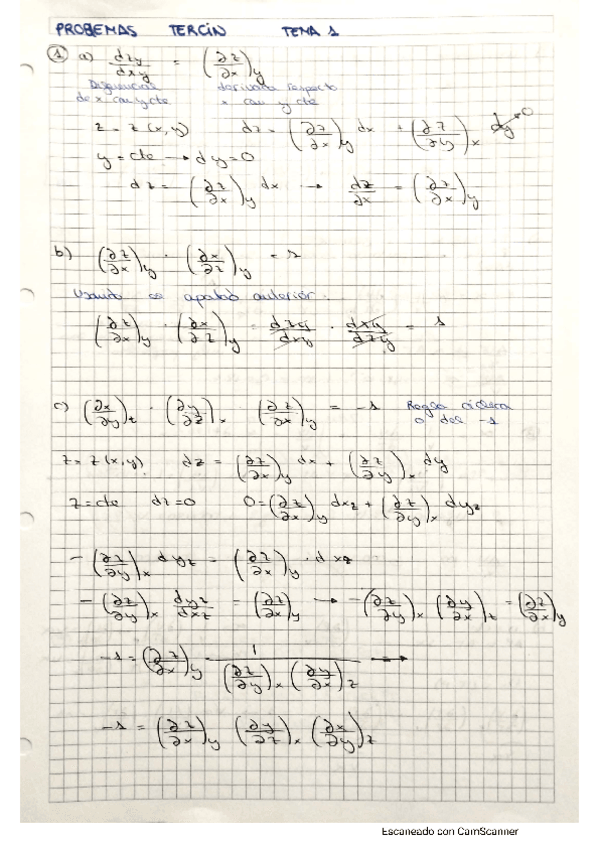 PROBLEMAS TERCIN TEMA 1
① a) dzy/dxy = (∂z/∂x)y
Diferencial derivada respecto
de x con y cte x con y cte
z = z(x,y) dz = (∂z/∂x)y dx + (∂z/∂y)x dy → 0
y = cte → dy = 0
dz = (∂z/∂x)y dx → dz/∂x = (∂z/∂x)y
b) (∂z/∂x)y · (∂x/∂z)y = 1
Usando apartado anterior.
(∂z/∂x)y · (∂x/∂z)y = dzy/dxy · dxy/dzy = 1
c) (∂x/∂y)z · (∂y/∂z)x (∂z/∂x)y = -1 Regla cíclica
o del -1
z = z(x,y) dz = (∂z/∂x)y dx + (∂z/∂y)x dy
z = cte dz = 0 0 = (∂z/∂x)y dxz + (∂z/∂y)x dyz
-(∂z/∂y)x dyz = (∂z/∂x)y · dxz
-(∂z/∂y)x dyz/dxz = (∂z/∂x)y → -(∂z/∂y)x (∂y/∂x)z = (∂z/∂x)y
-1 = (∂z/∂x)y 1/((∂z/∂y)x (∂y/∂x)z) →
-1 = (∂z/∂x)y (∂y/∂z)x (∂x/∂y)z
Escaneado con CamScanner